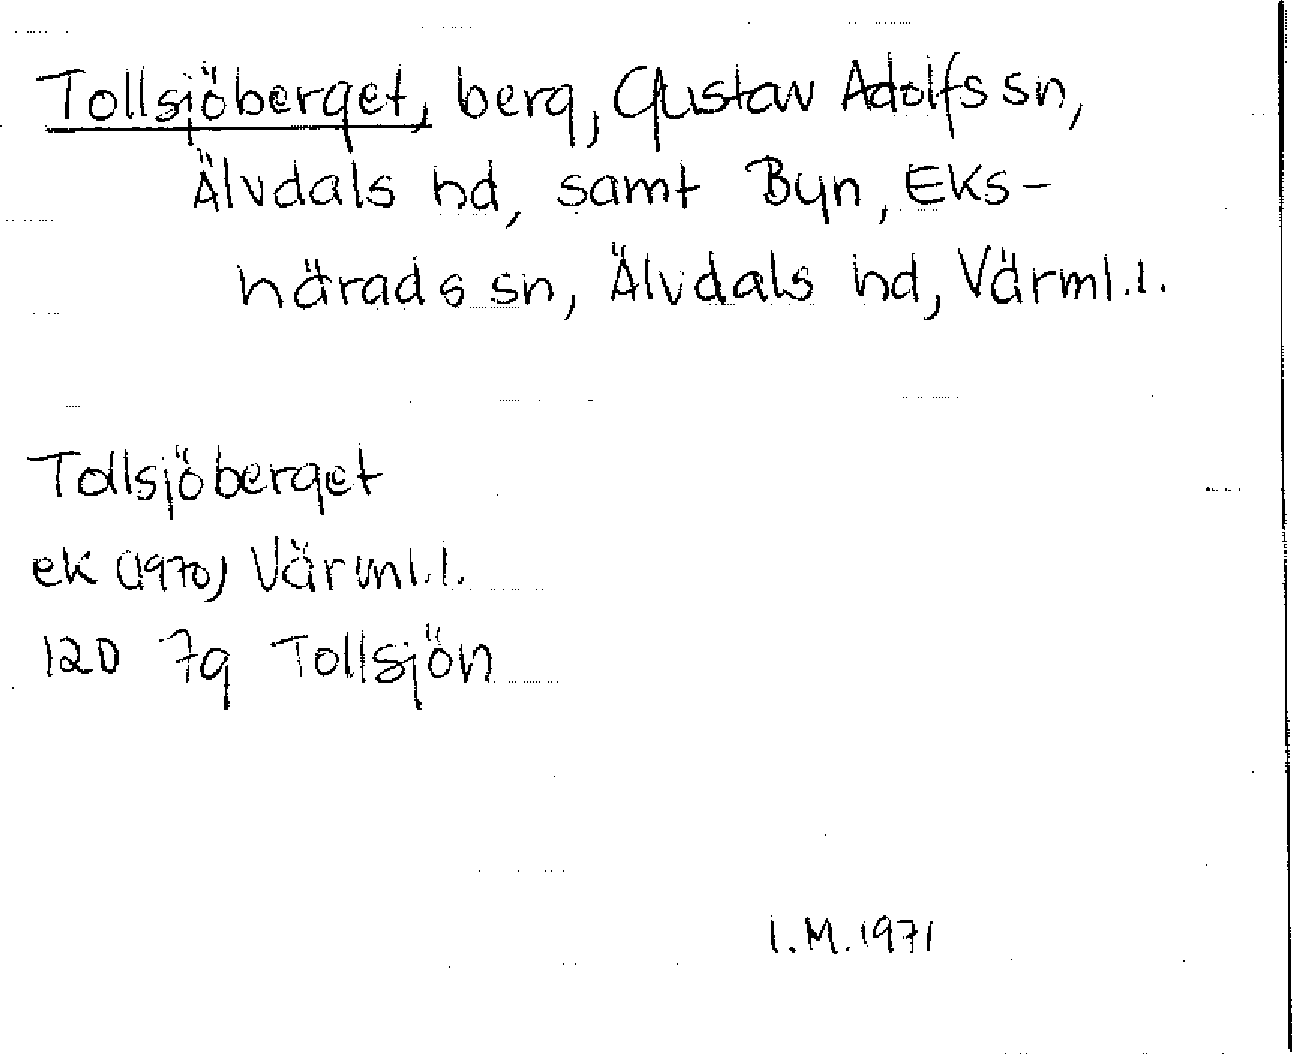 Tollsjöberget, berg, Gustav Adolfs sn,
Älvdals hd, samt Byn, Eks-
härads sn, Älvdals hd, Värml.l.
Tollsjöberget
ek (1970) Värml.l.
12D 7g Tollsjön
I.M.1971